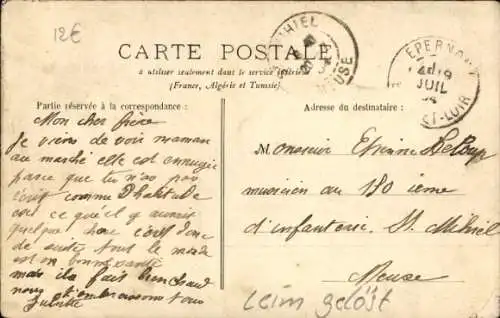 12€
CARTE POSTALE
à utiliser seulement dans le service intérieur
(France, Algérie et Tunisie)
MIHIEL
MEUSE
EPERNON
19
JUIL
ET-LOIR
Partie réservée à la correspondance :
Mon cher frère
Je viens de voir maman
au marché elle est ennuyée
parce que tu n'as pas
écrit comme d'habitude
ce qu'il y aurait
quelque chose écrit donc
de suite tout le monde
est en bonne santé
mais il a fait bien chaud
nous t'embrassons tous
Juliette
Adresse du destinataire :
Monsieur Etienne
musicien au 150 ième
d'infanterie. St. Mihiel
Meuse
leim gelöst